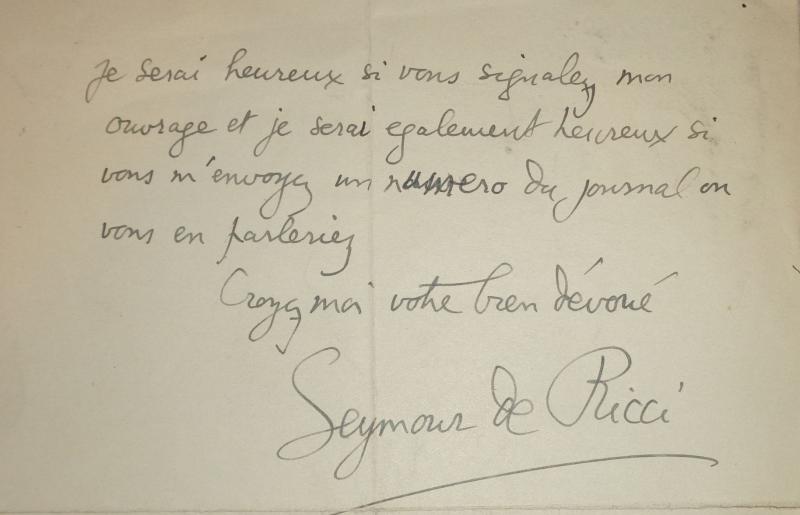 Je serai heureux si vous signalez mon
ouvrage et je serai egalement heureux si
vous m'envoyez un numero du journal ou
vous en parleriez
Croyez moi votre bien dévoué
Seymour de Ricci